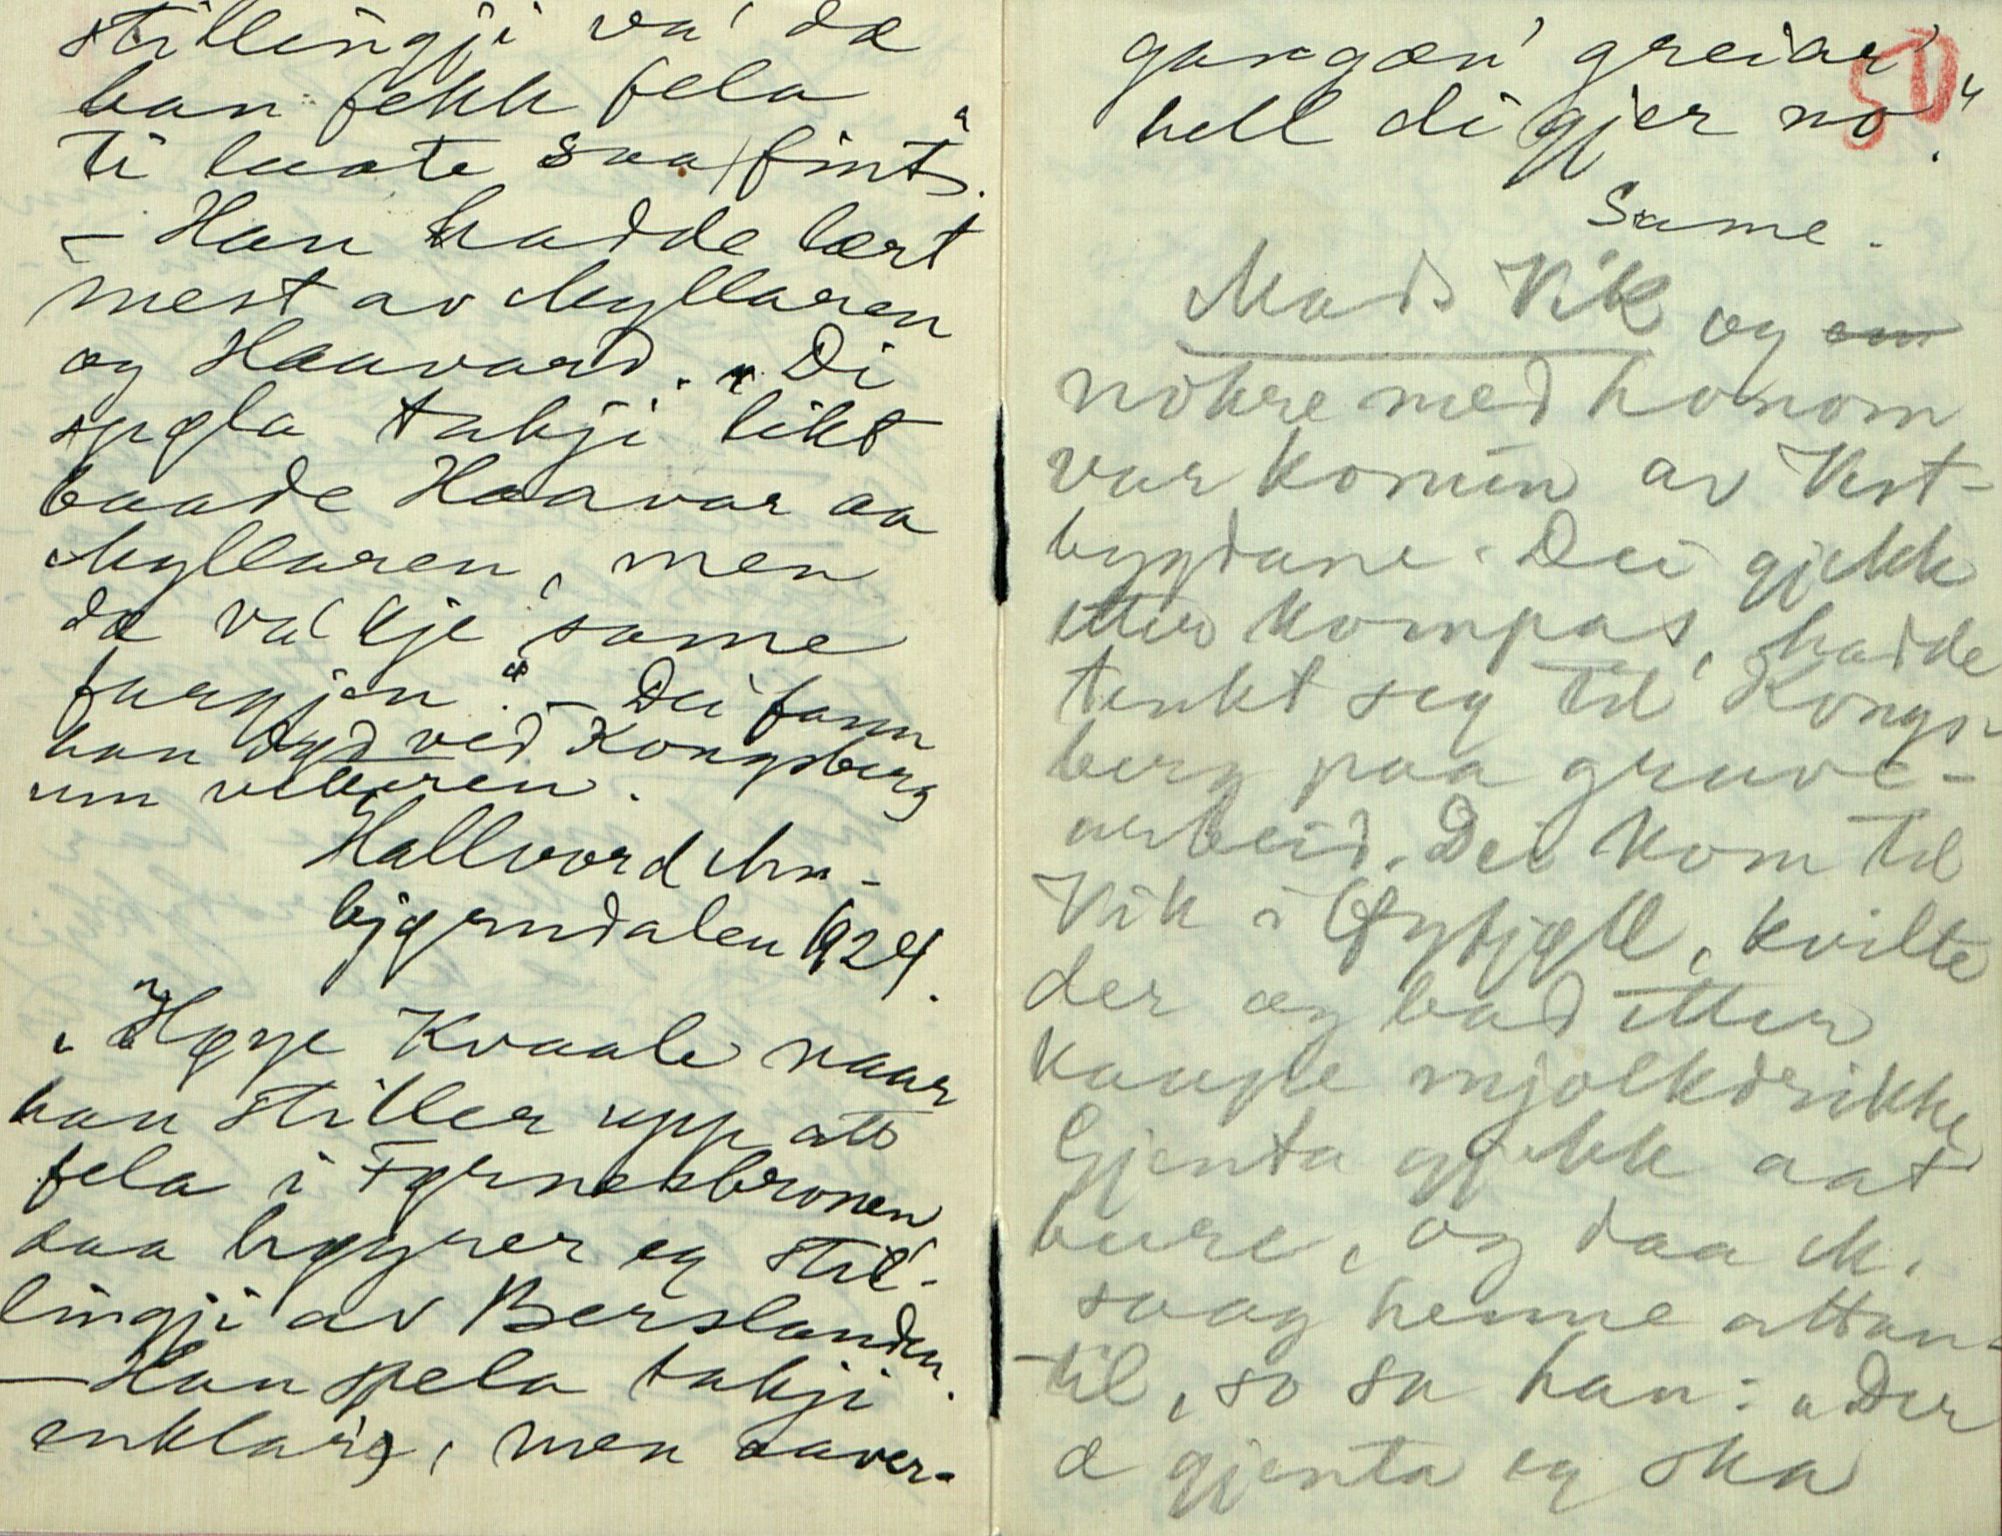 stillingji va' dæ
han fekk fela
ti laate saa fint".
– Han hadde lært
mest av Myllaren
og Haavard. "Di
spela takji likt
baade Haavar aa
Myllaren, men
dæ va' kje same
fargjen." – Dei fann
han døyd ved Kongsberg
um vetteren.
Hallvord Mm-
bjørndalen 1924.
"Høye Kvaale naar
han stiller upp att
fela i Førnesbronen
daa høyrer eg stil-
lingji av Berslanden.
– Han spela takji
enklare, men aaver-
gangæn' greiar'
hell di gjer no".
50
Same.
Mads Vik og en
nokre med honom
var komen av Vest-
bygdane. Dei gjekk
etter kompas, hadde
tenkt seg til Kongs-
berg paa gruve-
arbeid. Dei kom til
Vik i Øyfjell, kvilte
der og bad etter
kaupe mjølkdrikke
Gjenta gjekk aat
bure, og daa M.
saag henne attan-
til, so sa han: "Der
æ gjenta eg ska